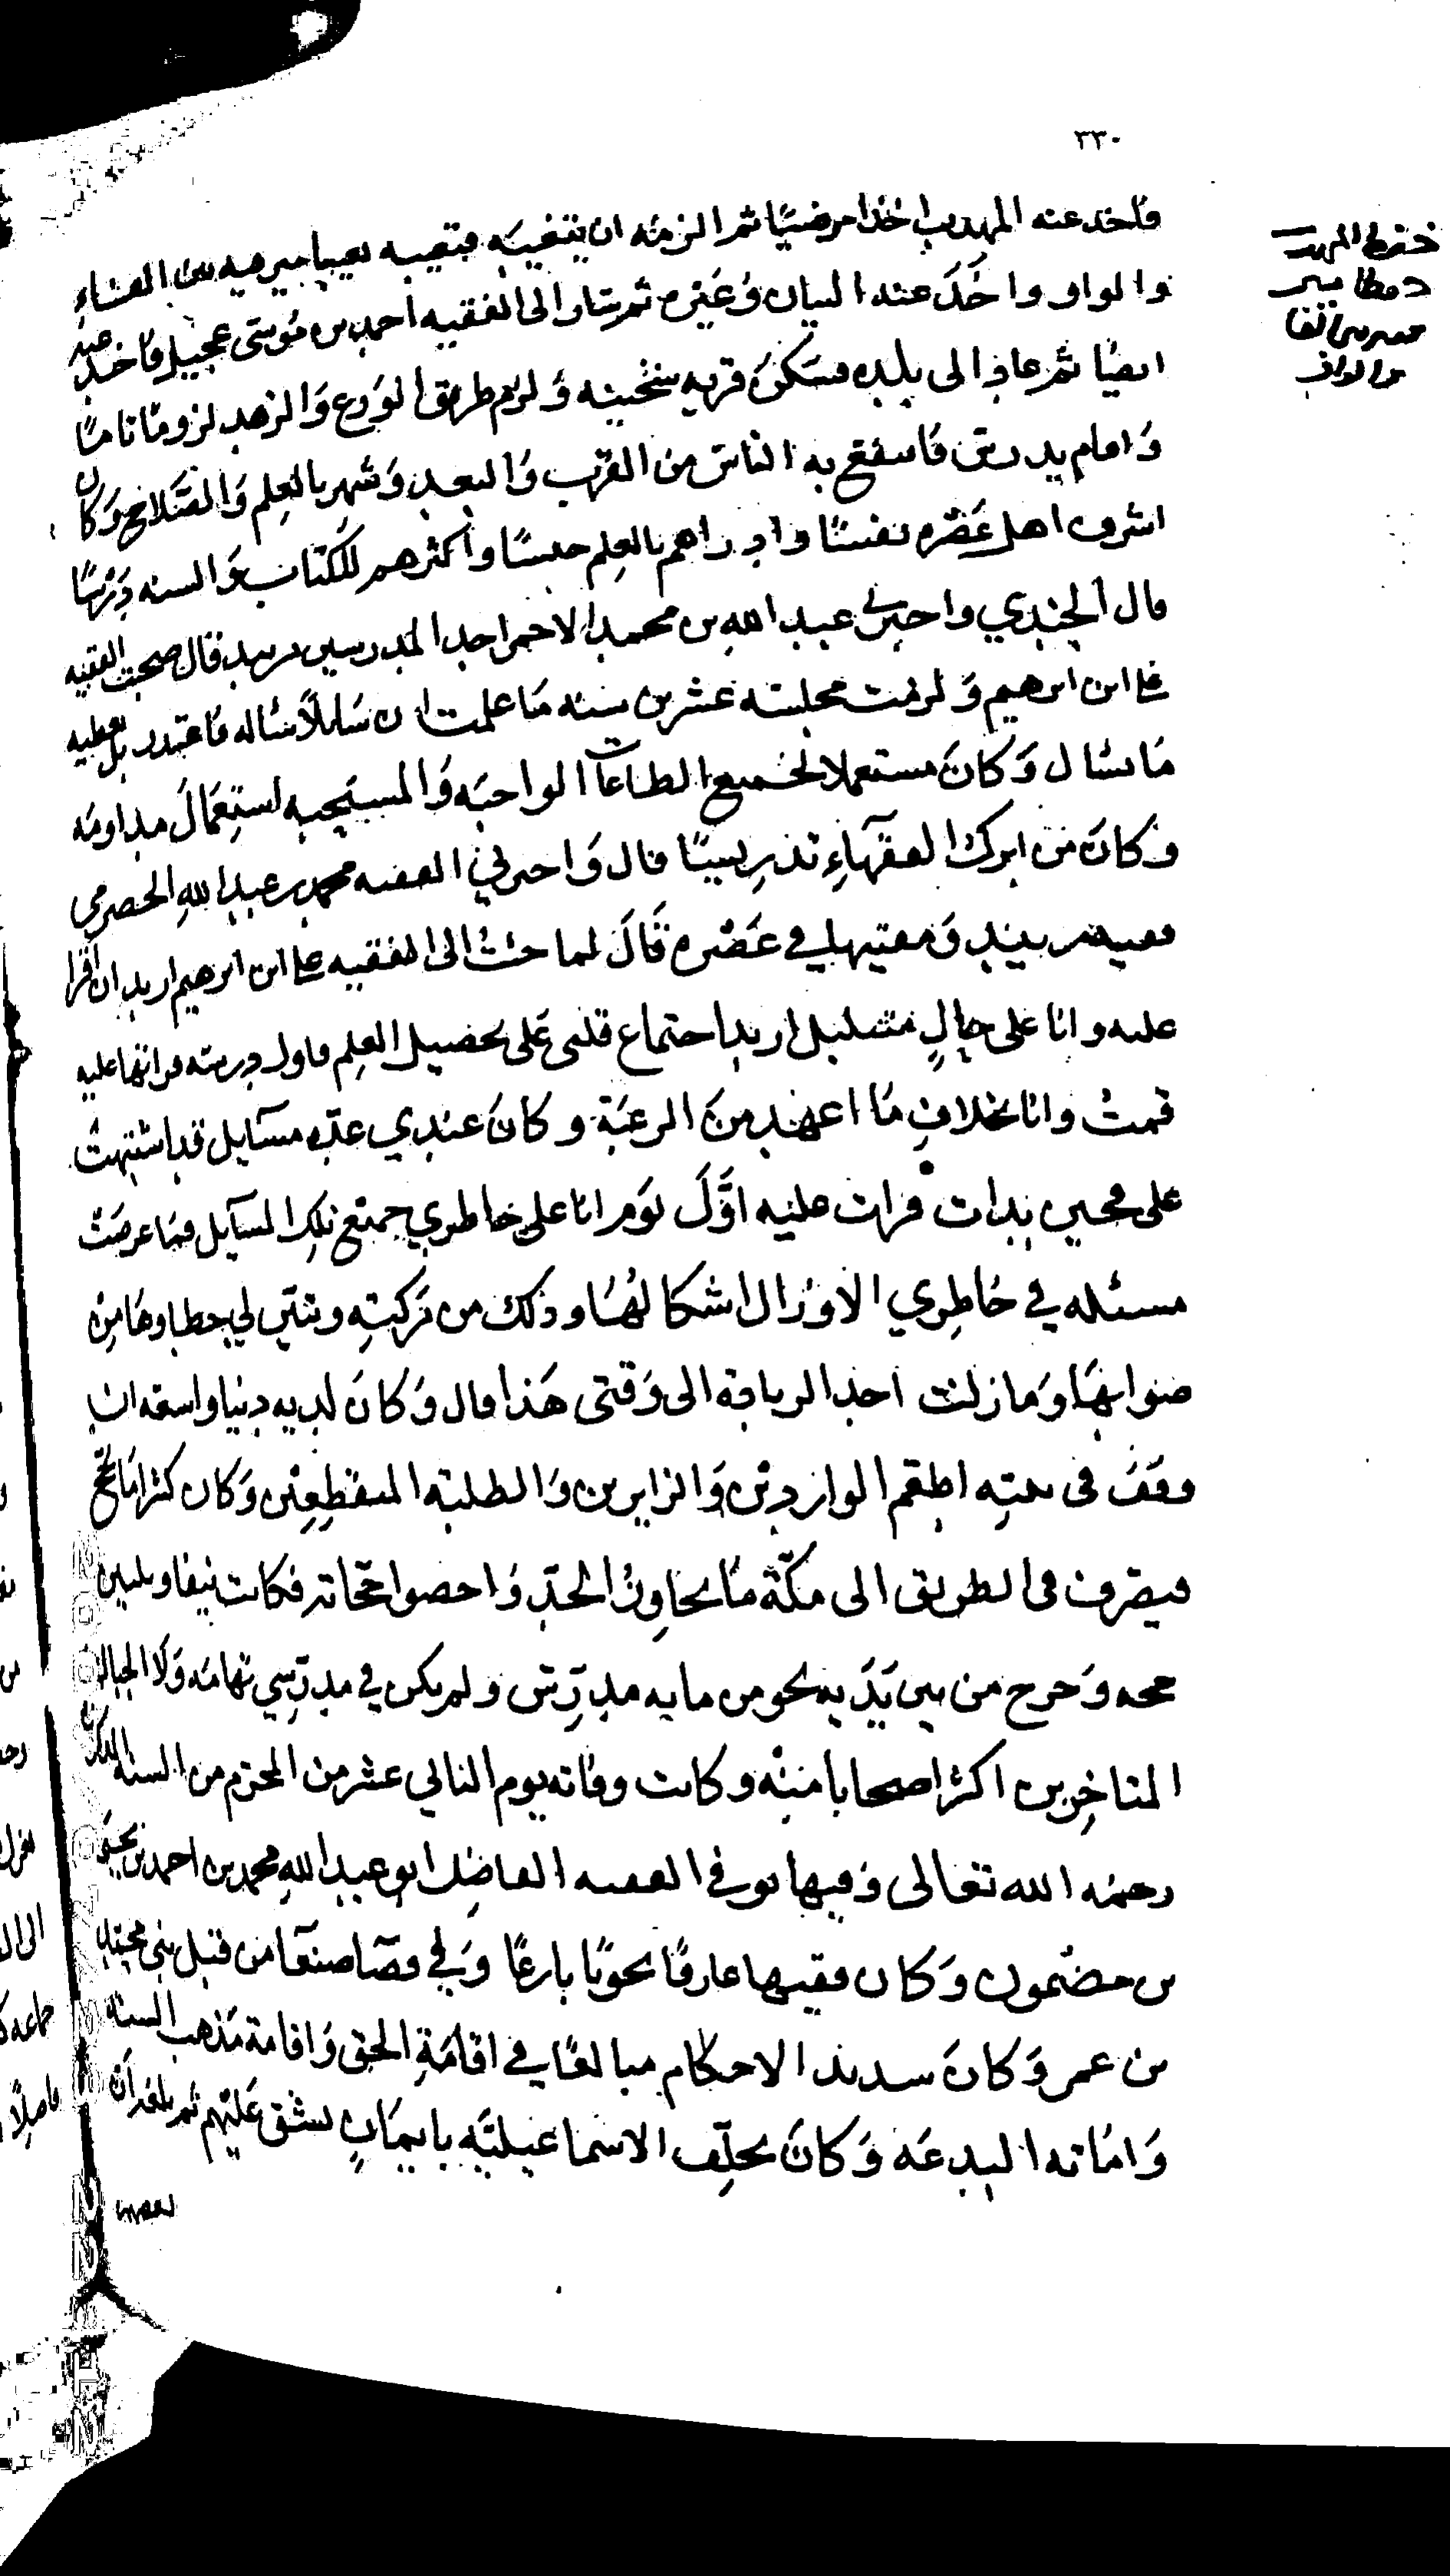 ٣٣٠
فاخد عنه المهدب اخذا مرضيًا ثم الزمه ان يتغيبه فتغيبه تغيبا يميز فيه بين الفاء
والواو واخذ عنه البيان وغيره ثم سار الى الفقيه احمد بن موسى عجيل فاخد عنه
ايضًا ثم عاد الى بلده فسكن قريه شخينه ولزم طريق الورع والزهد لزومًا تامًا
واقام يدرس فانتفع به الناس من القرب والبعد وشهر بالعلم والصلاح وكان
اشرف اهل عصره نفسًا وادراهم بالعلم حسًا واكثرهم للكتاب والسنه درسًا
قال الجندي واخبرني عبد الله بن محمد الاحمر احد المدرسين بزبيد قال صحبت الفقيه
علي ابن ابرهيم ولزمت مجلسه عشرين سنه ما علمت ان سايلًا ساله فاعتدر بل يعطيه
ما سال وكان مستعملا لجميع الطاعات الواجبه والمستحبه استعمال مداومه
وكان من ابرك الفقهاء تدريسًا قال واخبرني الفقيه محمد بن عبد الله الحضرمي
فقيه زبيد ومفتيها في عصره قال لما جئت الى الفقيه علي ابن ابرهيم اريد ان اقرا
عليه وانا على حال اريد اجتماع قلبي على تحصيل العلم فاول درسه قراتها عليه
قمت وانا بخلاف ما اعهد من الرغبة وكان عندي عدة مسايل قد اشتبهت
على فحين بدات قرات عليه اول يوم انا على خاطري جميع تلك المسايل فما عرضت
مسئله في خاطري الا وزال اشكالها وذلك من بركته وتبين لي خطاوها من
صوابها وما زلت اجد الزيادة الى وقتي هذا قال وكان لديه دنيا واسعه ان
وقف في بيته اطعم الواردين والزايرين والطلبة المنقطعين وكان كثيرا ما يحج
فيصرف في الطريق الى مكة ما يجاوز الحد واحصوا حجاته فكانت نيفا وثلثين
حجه وخرج من بين يديه نحو من مايه مدرس ولم يكن في مدرسي تهامه ولا الجبال
المتاخرين اكثر اصحابا منه وكانت وفاته يوم الثاني عشر من المحرم من السنه المذكوره
رحمه الله تعالى وفيها توفي الفقيه الفاضل ابو عبد الله محمد بن احمد بن يحيى
بن مضمون وكان فقيها عارفًا نحويًا بارعًا ولي قضا صنعا من قبل بني محمد
بن عمر وكان سديد الاحكام مبالغًا في اقامة الحق واقامة مذهب السنه
واماته البدعه وكان يحلف الاسماعيليه بايمان يشق عليهم ثم بلغه ان
بعضهم
حفظ المهدب